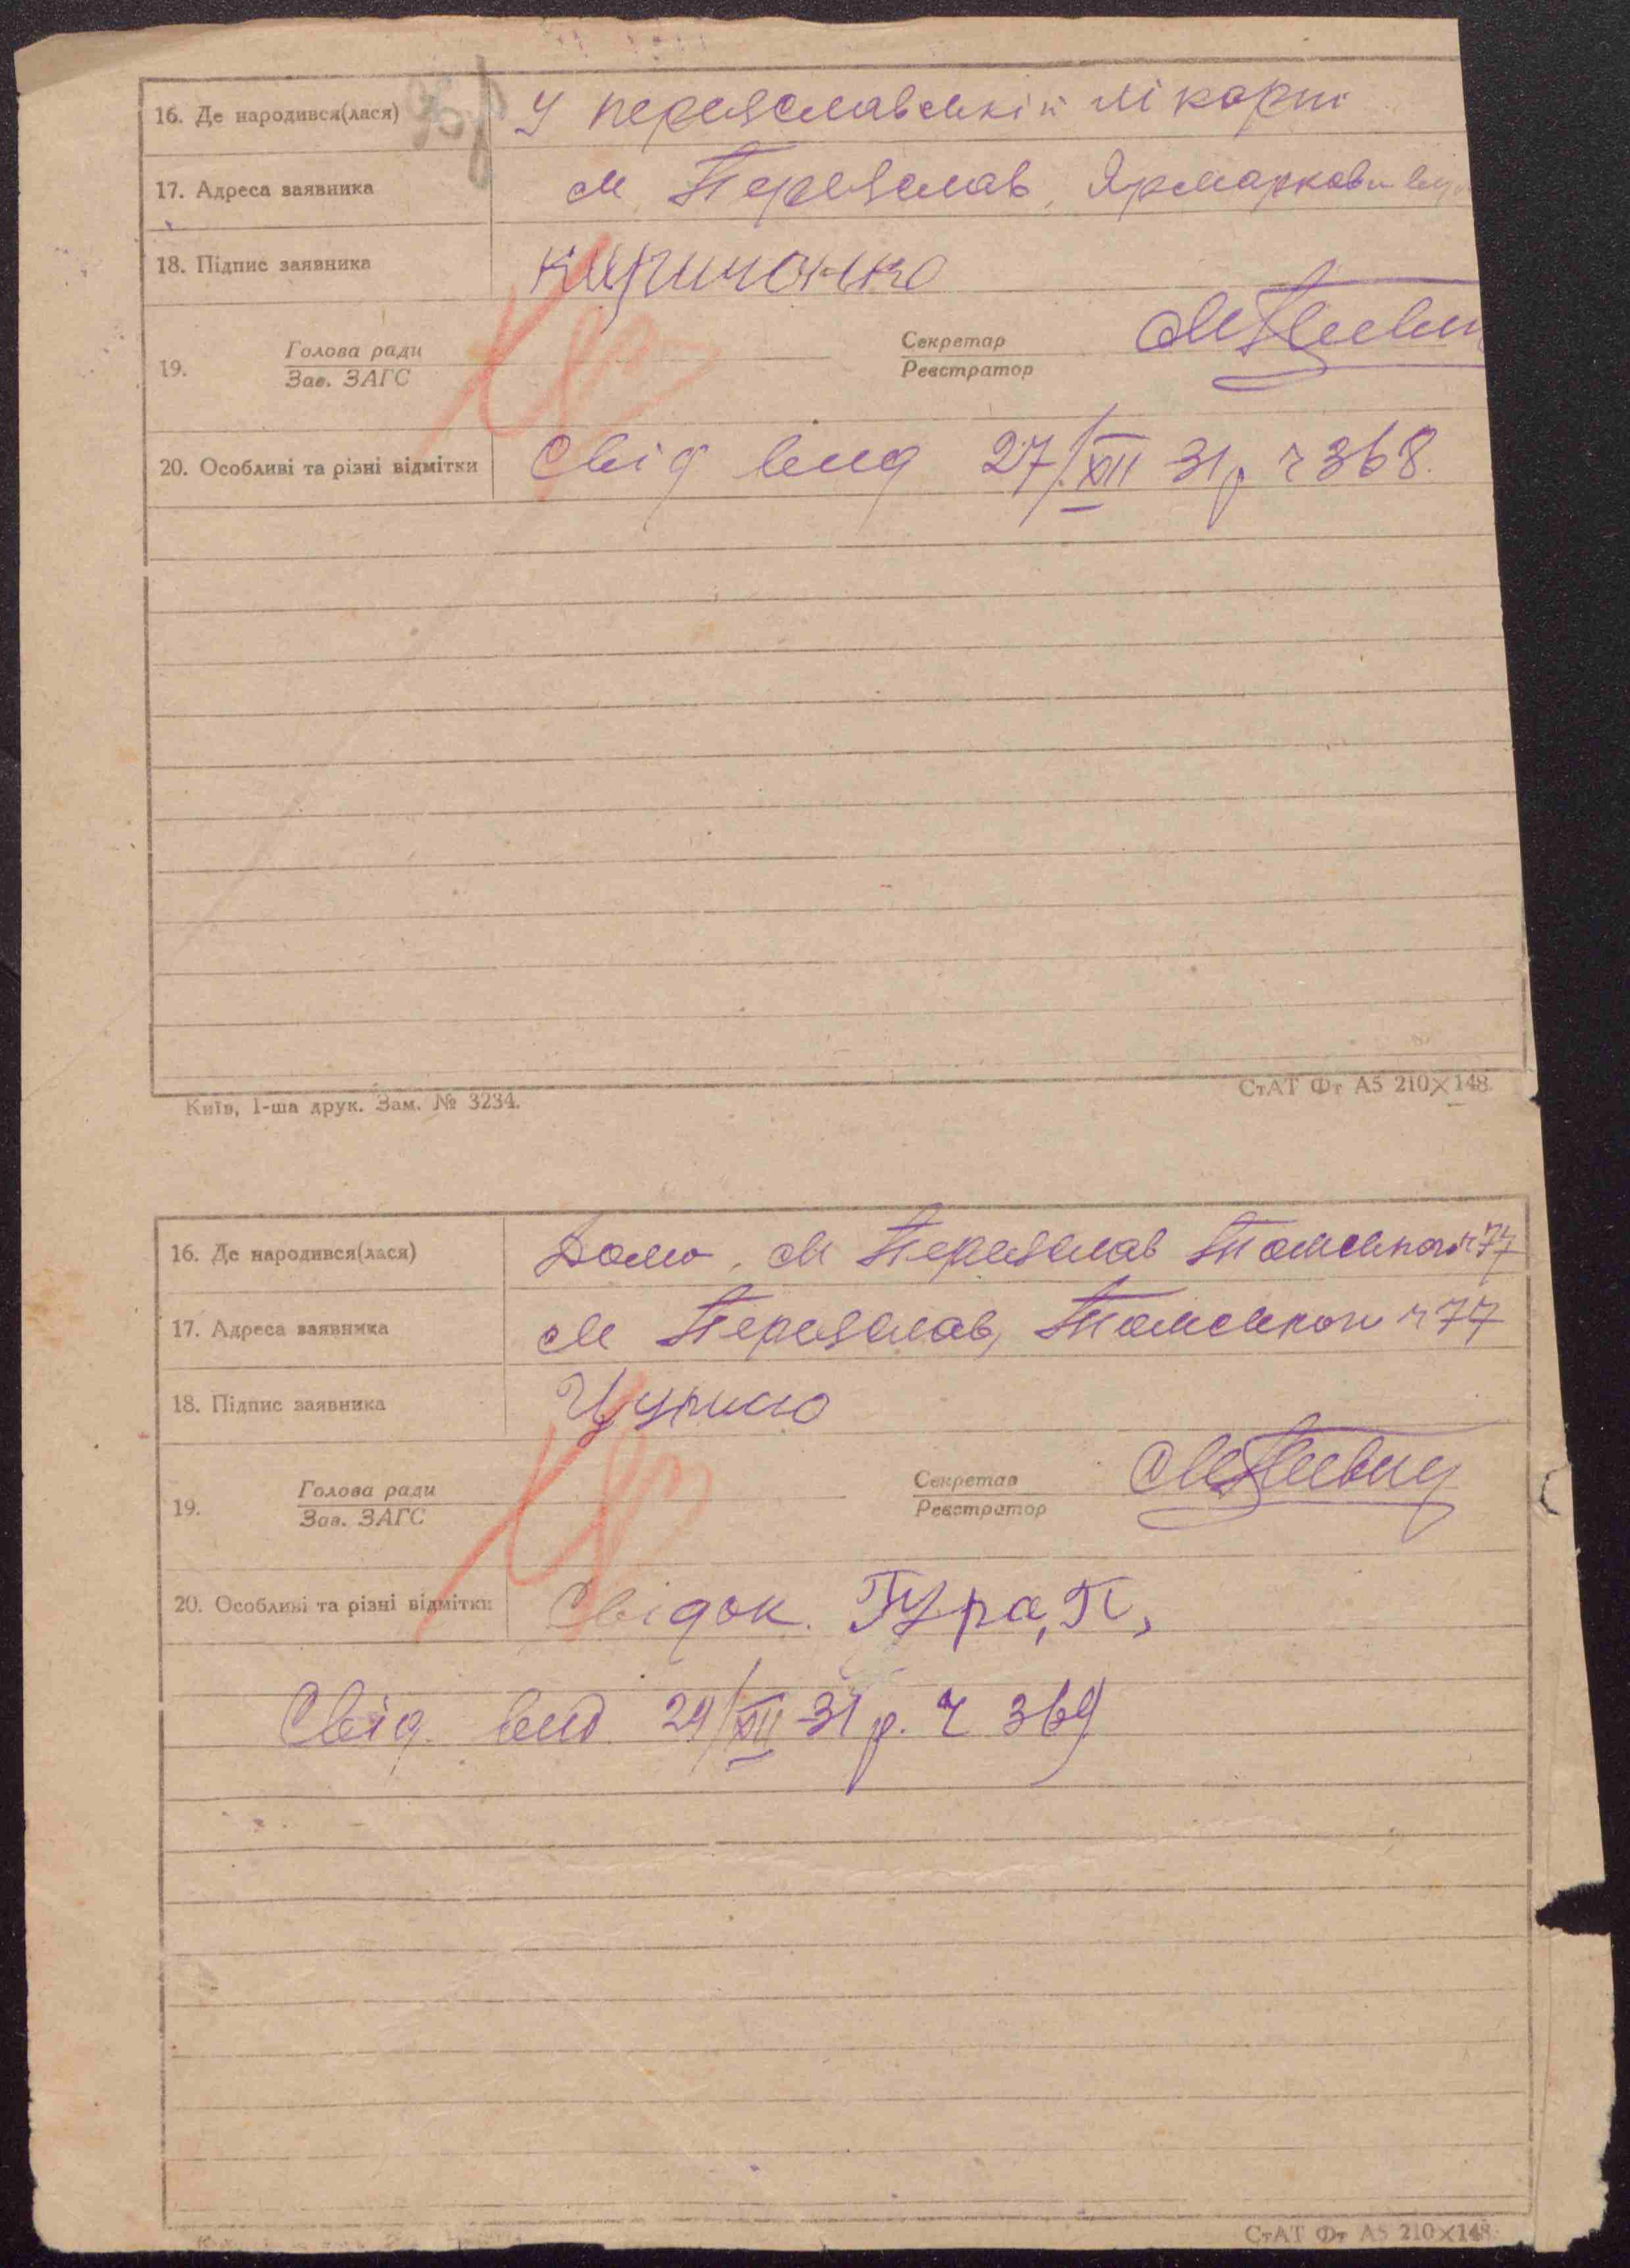 16. Де народився(лася) У переяславській лікарні
17. Адреса заявника м Переяслав, Ярмаркова
18. Підпис заявника Кириченко
19. Голова ради Секретар
Зав. ЗАГС Реєстратор
20. Особливі та різні відмітки Свід вид 27/XII 31р ч 368.
Київ, 1-ша друк. Зам. № 3234. СтАТ Фт А5 210×148.
16. Де народився(лася) Дома, м Переяслав ч 77
17. Адреса заявника м Переяслав, ч 77
18. Підпис заявника
19. Голова ради Секретар
Зав. ЗАГС Реєстратор
20. Особливі та різні відмітки Свідок. Гура, П,
Свід. вид. 29/XII 31 р. ч 369
СтАТ Фт А5 210×148.